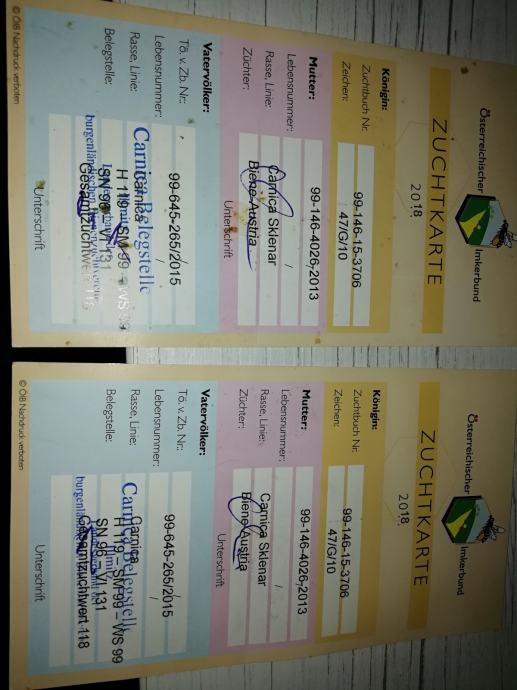 Österreichischer Imkerbund
ZUCHTKARTE
2018
Königin:
Zuchtbuch Nr. 99-146-15-3706
Zeichen: 47/G/10
Mutter: 99-146-4026-2013
Lebensnummer: /
Rasse, Linie: Carnica Sklenar
Züchter: Biene Austria
Unterschrift
Vatervölker:
Tö. v. Zb. Nr.: 99-645-265/2015
Lebensnummer: /
Rasse, Linie: Carnica
Carnica Belegstelle
H 119 - SM 99 - WS 99
Belegstelle: SN 96 - VI 131
burgenländischen
Gesamtzuchtwert 118
Unterschrift
© ÖIB Nachdruck verboten
Österreichischer Imkerbund
ZUCHTKARTE
2018
Königin:
Zuchtbuch Nr. 99-146-15-3706
Zeichen: 47/G/10
Mutter: 99-146-4026-2013
Lebensnummer: /
Rasse, Linie: Carnica Sklenar
Züchter: Biene Austria
Unterschrift
Vatervölker:
Tö. v. Zb. Nr.: 99-645-265/2015
Lebensnummer: /
Rasse, Linie: Carnica
Carnica Belegstelle
H 119 - SM 99 - WS 99
Belegstelle: SN 96 - VI 131
Gesamtzuchtwert 118
Unterschrift
© ÖIB Nachdruck verboten